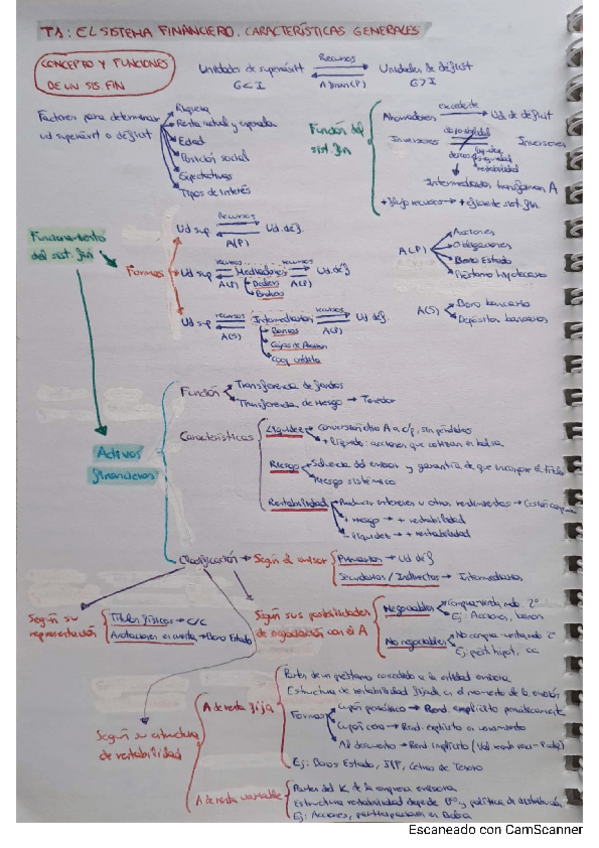 T1: EL SISTEMA FINANCIERO. CARACTERÍSTICAS GENERALES
CONCEPTO Y FUNCIONES
DE UN SIS. FIN
Unidades de superávit
G < I
Recursos
A finan (P)
Unidades de déficit
G > I
Factores para determinar
ud superávit o déficit
Riqueza
Renta actual y esperada
Edad
Posición social
Expectativas
Tipos de interés
Función del
sist. fin
Ahorradores
excedente
Ud de déficit
Inversores
disponibilidad
liquidez
seguridad
rentabilidad
Inversores
Intermediarios transforman A
+ flujo recursos → + eficiente sist. fin
Funcionamiento
del sist. fin
Formas
Ud sup
Recursos
A(P)
Ud def.
Ud sup
recursos
A(P)
Mediadores
Dealers
Brokers
recursos
A(P)
Ud. def
Ud sup
recursos
A(S)
Intermediarios
Bancos
Cajas de Ahorros
Coop. crédito
recursos
A(P)
Ud. def.
A(P)
Acciones
Obligaciones
Bono Estado
Préstamo hipotecario
A(S)
Bono bancario
Depósitos bancarios
Activos
financieros
Función
Transferencia de fondos
Transferencia de riesgo → Tenedor
Características
Liquidez
Conversión otro A a c/p, sin pérdidas
+ líquido: acciones que cotizan en bolsa
Riesgo
Solvencia del emisor y garantía de que incorpore el título
Riesgo sistémico
Rentabilidad
Producir intereses u otros rendimientos →
+ riesgo → + rentabilidad
- liquidez → + rentabilidad
Clasificación
Según el emisor
Primarios → Ud def
Secundarios / Indirectos → Intermediarios
Según su
representación
Títulos físicos → C/C
Anotaciones en cuenta → Bono Estado
Según sus posibilidades
de negociación con el A
Negociables
Compraventa mdo 2º
Ej: Acciones, bonos
No negociables
No compra-venta mdo 2º
Ej: prést hipot, cc
Según su estructura
de rentabilidad
A de renta fija
Partes de un préstamo concedido a la entidad emisora
Estructura de rentabilidad fijada en el momento de la emisión
Formas
Cupón periódico → Rend. explícito periódicamente
Cupón cero → Rend. explícito en vencimiento
Al descuento → Rend implícito
Ej: Bonos Estado, Letras de Tesoro
A de renta variable
Partes del K de la empresa emisora
Estructura rentabilidad depende Bº y política de distribución
Ej: Acciones, participaciones en Bolsa
Escaneado con CamScanner